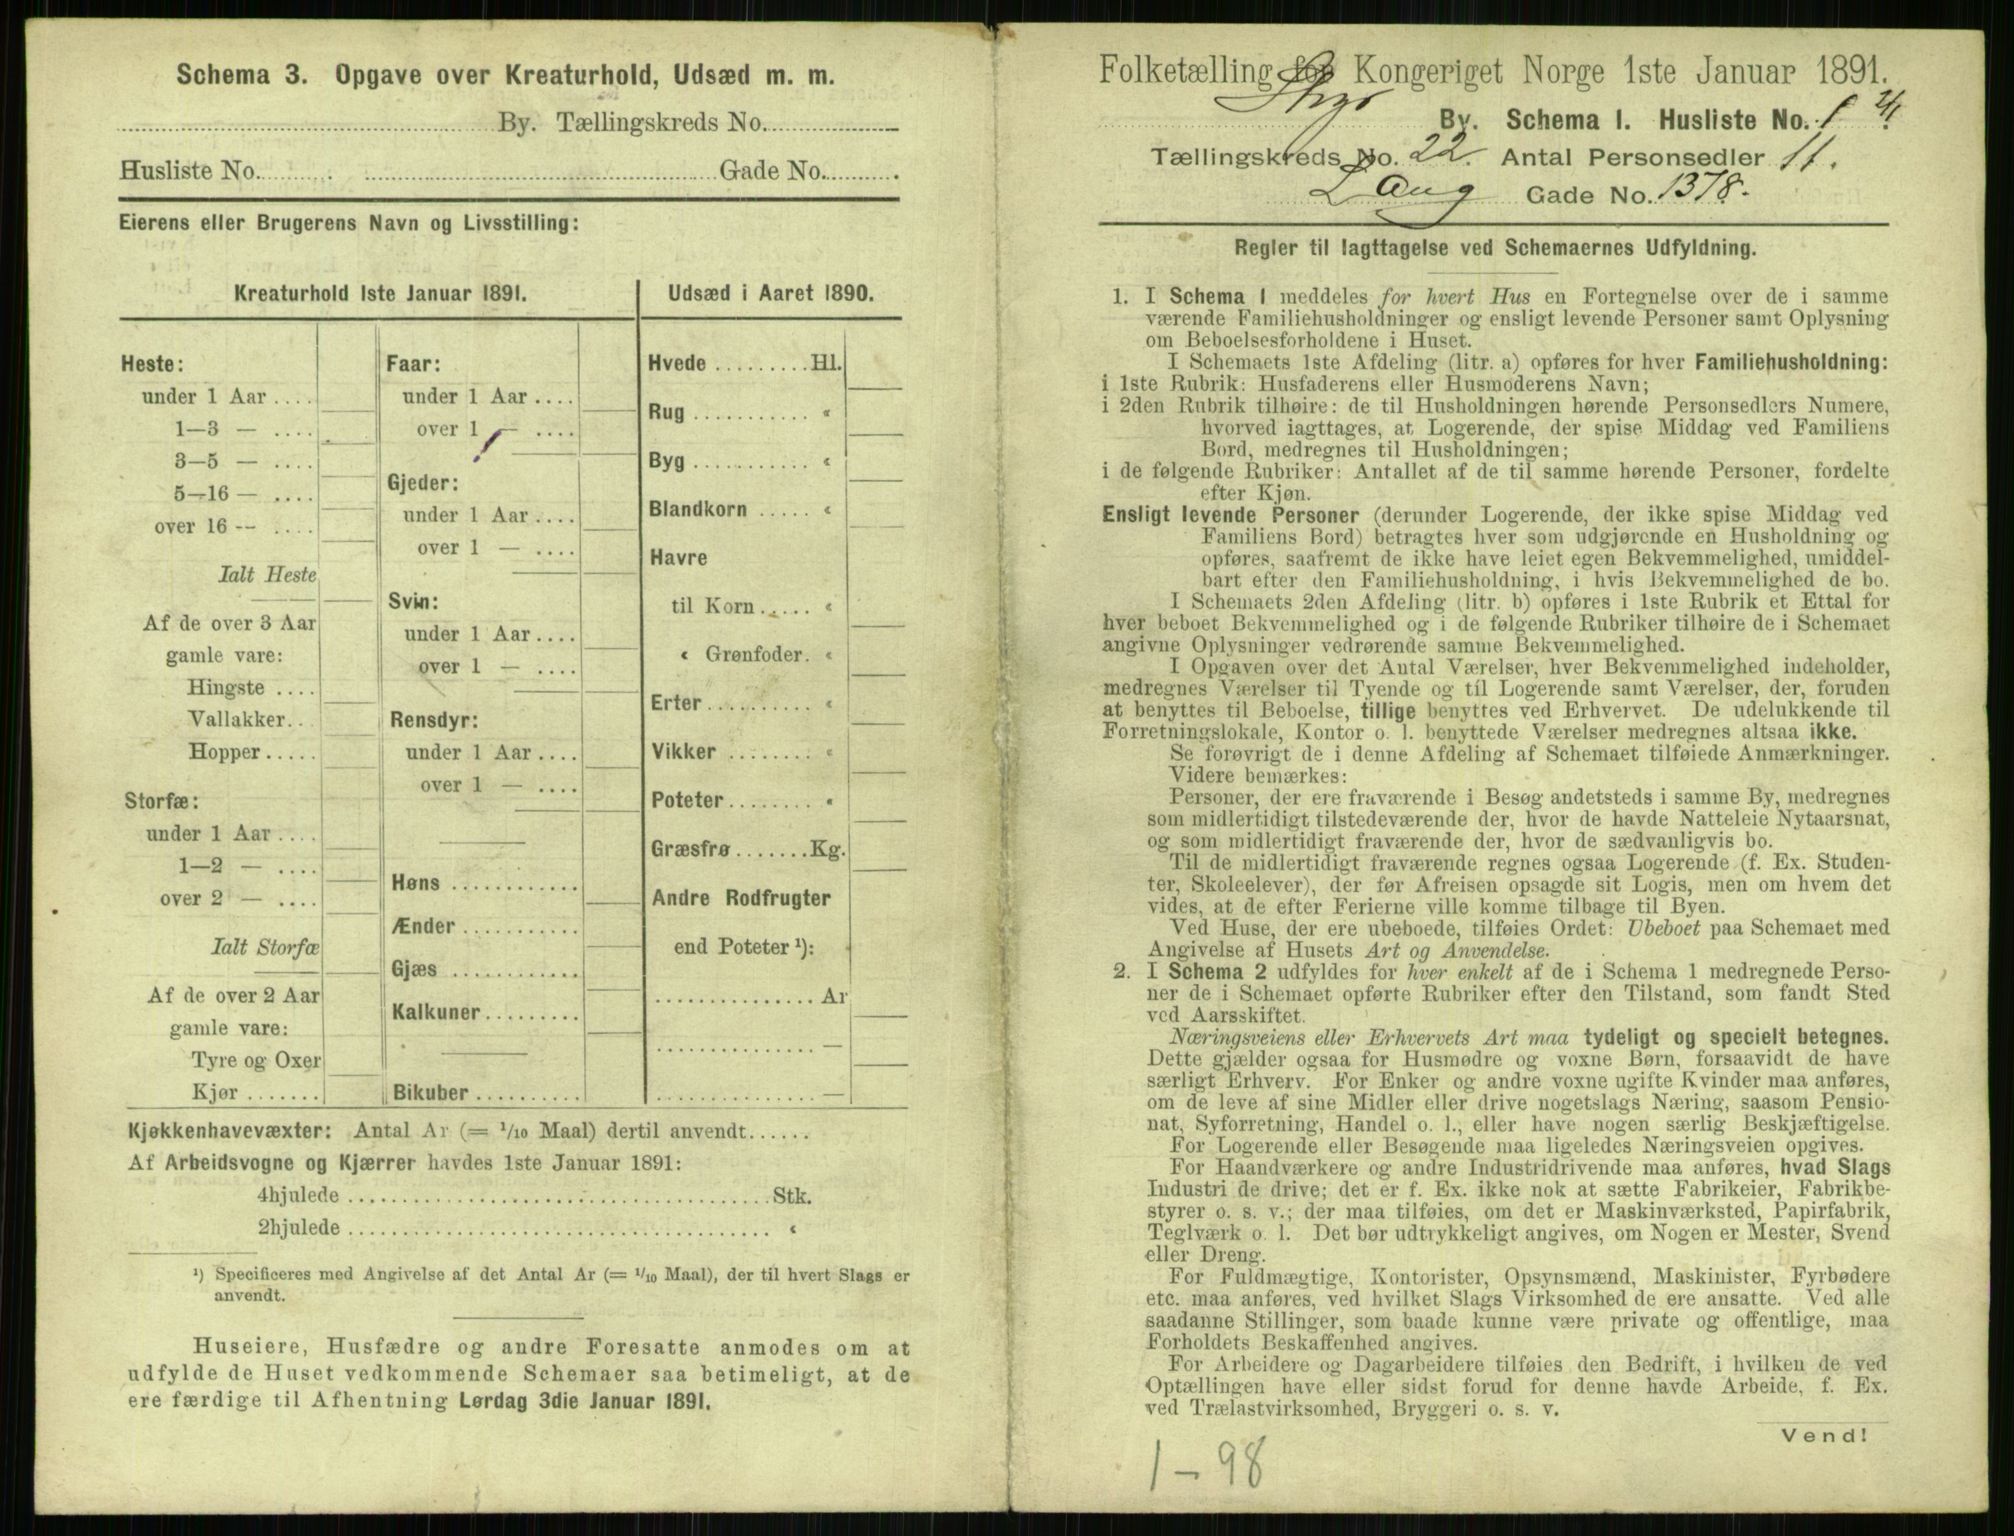 Schema 3. Opgave over Kreaturhold, Udsæd m. m.
By. Tællingskreds No.
Husliste No. Gade No.
Eierens eller Brugerens Navn og Livsstilling:
Kreaturhold 1ste Januar 1891.
Heste:
under 1 Aar ....
1—3 — ....
3—5 — ....
5—16 — ....
over 16 -- ....
Ialt Heste
Af de over 3 Aar
gamle vare:
Hingste ....
Vallakker...
Hopper.....
Storfæ:
under 1 Aar ....
1—2 — ....
over 2 — ....
Ialt Storfæ
Af de over 2 Aar
gamle vare:
Tyre og Oxer
Kjør .......
Faar:
under 1 Aar ....
over 1 — ....
Gjeder:
under 1 Aar ....
over 1 — ....
Svin:
under 1 Aar ....
over 1 — ....
Rensdyr:
under 1 Aar ....
over 1 — ....
Høns ............
Ænder ...........
Gjæs ............
Kalkuner.........
Bikuber ..........
Udsæd i Aaret 1890.
Hvede .........Hl.
Rug ........... «
Byg ........... «
Blandkorn ..... «
Havre
til Korn..... «
« Grønfoder. «
Erter.......... «
Vikker ........ «
Poteter........ «
Græsfrø.......Kg.
Andre Rodfrugter
end Poteter ¹):
............... Ar
............... —
............... —
Kjøkkenhavevæxter: Antal Ar (= 1/10 Maal) dertil anvendt......
Af Arbeidsvogne og Kjærrer havdes 1ste Januar 1891:
4hjulede ....................................... Stk.
2hjulede ....................................... «
¹) Specificeres med Angivelse af det Antal Ar (= 1/10 Maal), der til hvert Slags er
anvendt.
Huseiere, Husfædre og andre Foresatte anmodes om at
udfylde de Huset vedkommende Schemaer saa betimeligt, at de
ere færdige til Afhentning Lørdag 3die Januar 1891.
Folketælling for Kongeriget Norge 1ste Januar 1891.
By. Schema I. Husliste No. 1
Tællingskreds No. 22. Antal Personsedler 11.
Lang Gade No. 1378.
Regler til Iagttagelse ved Schemaernes Udfyldning.
1. I Schema I meddeles for hvert Hus en Fortegnelse over de i samme
værende Familiehusholdninger og ensligt levende Personer samt Oplysning
om Beboelsesforholdene i Huset.
I Schemaets 1ste Afdeling (litr. a) opføres for hver Familiehusholdning:
i 1ste Rubrik: Husfaderens eller Husmoderens Navn;
i 2den Rubrik tilhøire: de til Husholdningen hørende Personsedlers Numere,
hvorved iagttages, at Logerende, der spise Middag ved Familiens
Bord, medregnes til Husholdningen;
i de følgende Rubriker: Antallet af de til samme hørende Personer, fordelte
efter Kjøn.
Ensligt levende Personer (derunder Logerende, der ikke spise Middag ved
Familiens Bord) betragtes hver som udgjørende en Husholdning og
opføres, saafremt de ikke have leiet egen Bekvemmelighed, umiddel-
bart efter den Familiehusholdning, i hvis Bekvemmelighed de bo.
I Schemaets 2den Afdeling (litr. b) opføres i 1ste Rubrik et Ettal for
hver beboet Bekvemmelighed og i de følgende Rubriker tilhøire de i Schemaet
angivne Oplysninger vedrørende samme Bekvemmelighed.
I Opgaven over det Antal Værelser, hver Bekvemmelighed indeholder,
medregnes Værelser til Tyende og til Logerende samt Værelser, der, foruden
at benyttes til Beboelse, tillige benyttes ved Erhvervet. De udelukkende til
Forretningslokale, Kontor o. l. benyttede Værelser medregnes altsaa ikke.
Se forøvrigt de i denne Afdeling af Schemaet tilføiede Anmærkninger.
Videre bemærkes:
Personer, der ere fraværende i Besøg andetsteds i samme By, medregnes
som midlertidigt tilstedeværende der, hvor de havde Natteleie Nytaarsnat,
og som midlertidigt fraværende der, hvor de sædvanligvis bo.
Til de midlertidigt fraværende regnes ogsaa Logerende (f. Ex. Studen-
ter, Skoleelever), der før Afreisen opsagde sit Logis, men om hvem det
vides, at de efter Ferierne ville komme tilbage til Byen.
Ved Huse, der ere ubeboede, tilføies Ordet: Ubeboet paa Schemaet med
Angivelse af Husets Art og Anvendelse.
2. I Schema 2 udfyldes for hver enkelt af de i Schema 1 medregnede Perso-
ner de i Schemaet opførte Rubriker efter den Tilstand, som fandt Sted
ved Aarsskiftet.
Næringsveiens eller Erhvervets Art maa tydeligt og specielt betegnes.
Dette gjælder ogsaa for Husmødre og voxne Børn, forsaavidt de have
særligt Erhverv. For Enker og andre voxne ugifte Kvinder maa anføres,
om de leve af sine Midler eller drive nogetslags Næring, saasom Pensio-
nat, Syforretning, Handel o. l., eller have nogen særlig Beskjæftigelse.
For Logerende eller Besøgende maa ligeledes Næringsveien opgives.
For Haandværkere og andre Industridrivende maa anføres, hvad Slags
Industri de drive; det er f. Ex. ikke nok at sætte Fabrikeier, Fabrikbe-
styrer o. s. v.; der maa tilføies, om det er Maskinværksted, Papirfabrik,
Teglværk o. l. Det bør udtrykkeligt angives, om Nogen er Mester, Svend
eller Dreng.
For Fuldmægtige, Kontorister, Opsynsmænd, Maskinister, Fyrbødere
etc. maa anføres, ved hvilket Slags Virksomhed de ere ansatte. Ved alle
saadanne Stillinger, som baade kunne være private og offentlige, maa
Forholdets Beskaffenhed angives.
For Arbeidere og Dagarbeidere tilføies den Bedrift, i hvilken de ved
Optællingen have eller sidst forud for denne havde Arbeide, f. Ex.
ved Trælastvirksomhed, Bryggeri o. s. v.
Vend!
1 - 98